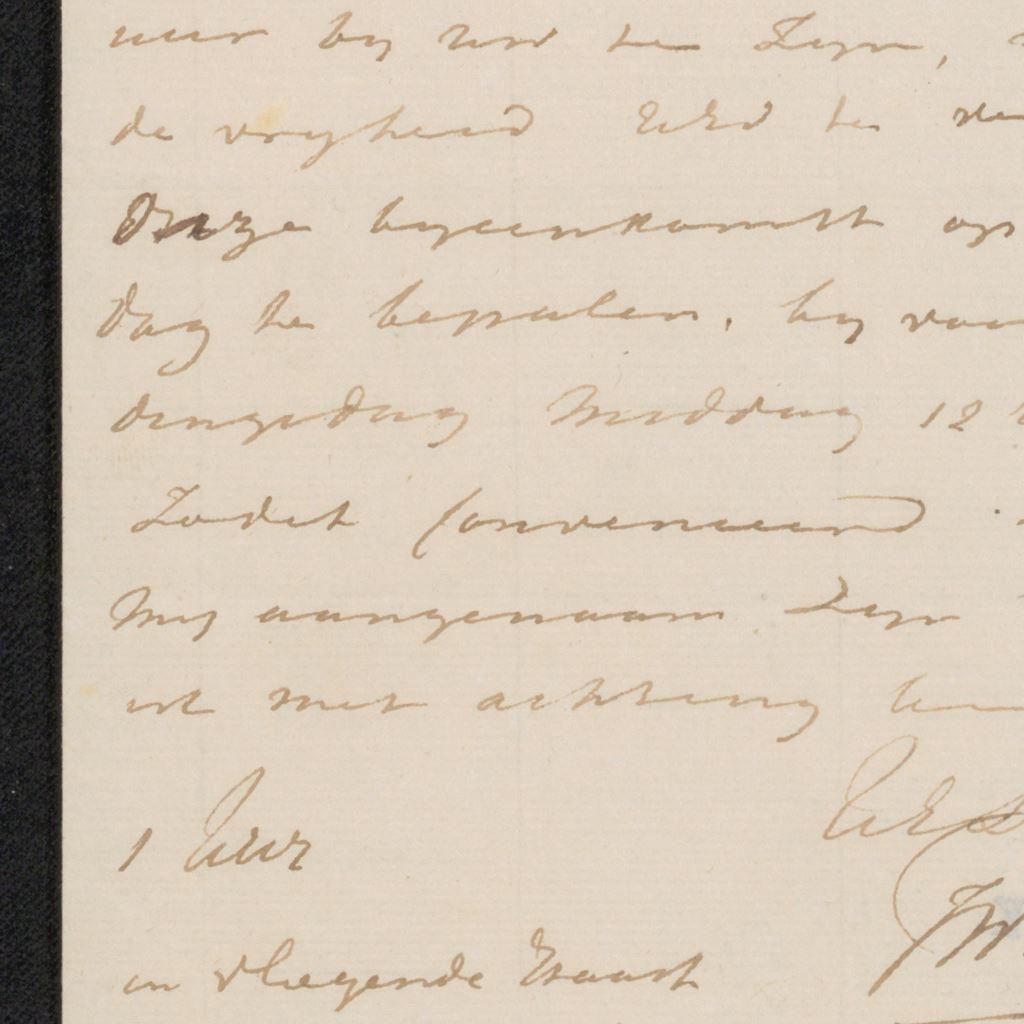 uur by uw te Zyn,
de vryheid UEd te
Onze byeenkomst op
dag te bepalen, by voor
dingsdag Middag 12
Zodit Convenieerd
My aangenaam Zyn
ik met achting
1 Uur
in vliegende Haast